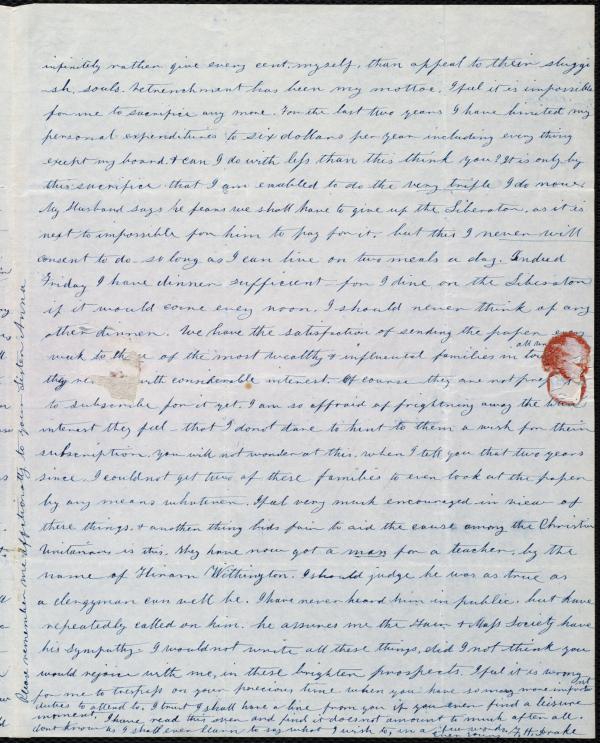 infinitely rather give every cent, myself, than appeal to their sluggi
sh, souls. Retrenchment has been my mottoe, I feel it is impossible
for me to sacrifice any more. For the last two years I have limited my
personal expenditures to six dollars per year including every thing
except my board & can I do with less than this think you? It is only by
this sacrifice that I am enabled to do the very trifle I do now.
My Husband says he fears we shall have to give up the Liberator, as it is
next to impossible for him to pay for it, but this I never will
consent to do so long as I can live on two meals a day. Indeed
Friday I have dinner sufficient for I dine on the Liberator
if it would come every noon, I should never think of any
other dinner. We have the satisfaction of sending the paper every
week to of the most wealthy & influential families in town
they with considerable interest. Of course they are not
to subscribe for it yet. I am so affraid of frightning away the
interest they feel that I do not dare to hint to them a wish for their
subscription. You will not wonder at this, when I tell you that two years
since, I could not get two of these families to even look at the paper
by any means whatever. I feel very much encouraged in view of
these things. & another thing bids fair to aid the cause among the Christian
Unitarians is this. They have now got a man for a teacher, by the
name of Hiram Withington. I should judge he was as true as
a clergyman can well be. I have never heard him in public, but have
repeatedly called on him. he assures me the & Mass Society have
his sympathy. I would not write all these things, did I not think you
would rejoice with me, in these brighten prospects. I feel it is wrong
for me to trespass on your precious time when you have so many more important
duties to attend to, I trust I shall have a line from you if you ever find a leisure
moment, I have read this over and find it does not amount to much after all.
dont know as I shall ever learn to say what I wish to, in a few words,
ever yours F. H. Drake
Please remember me affectionately to your Sister Anna